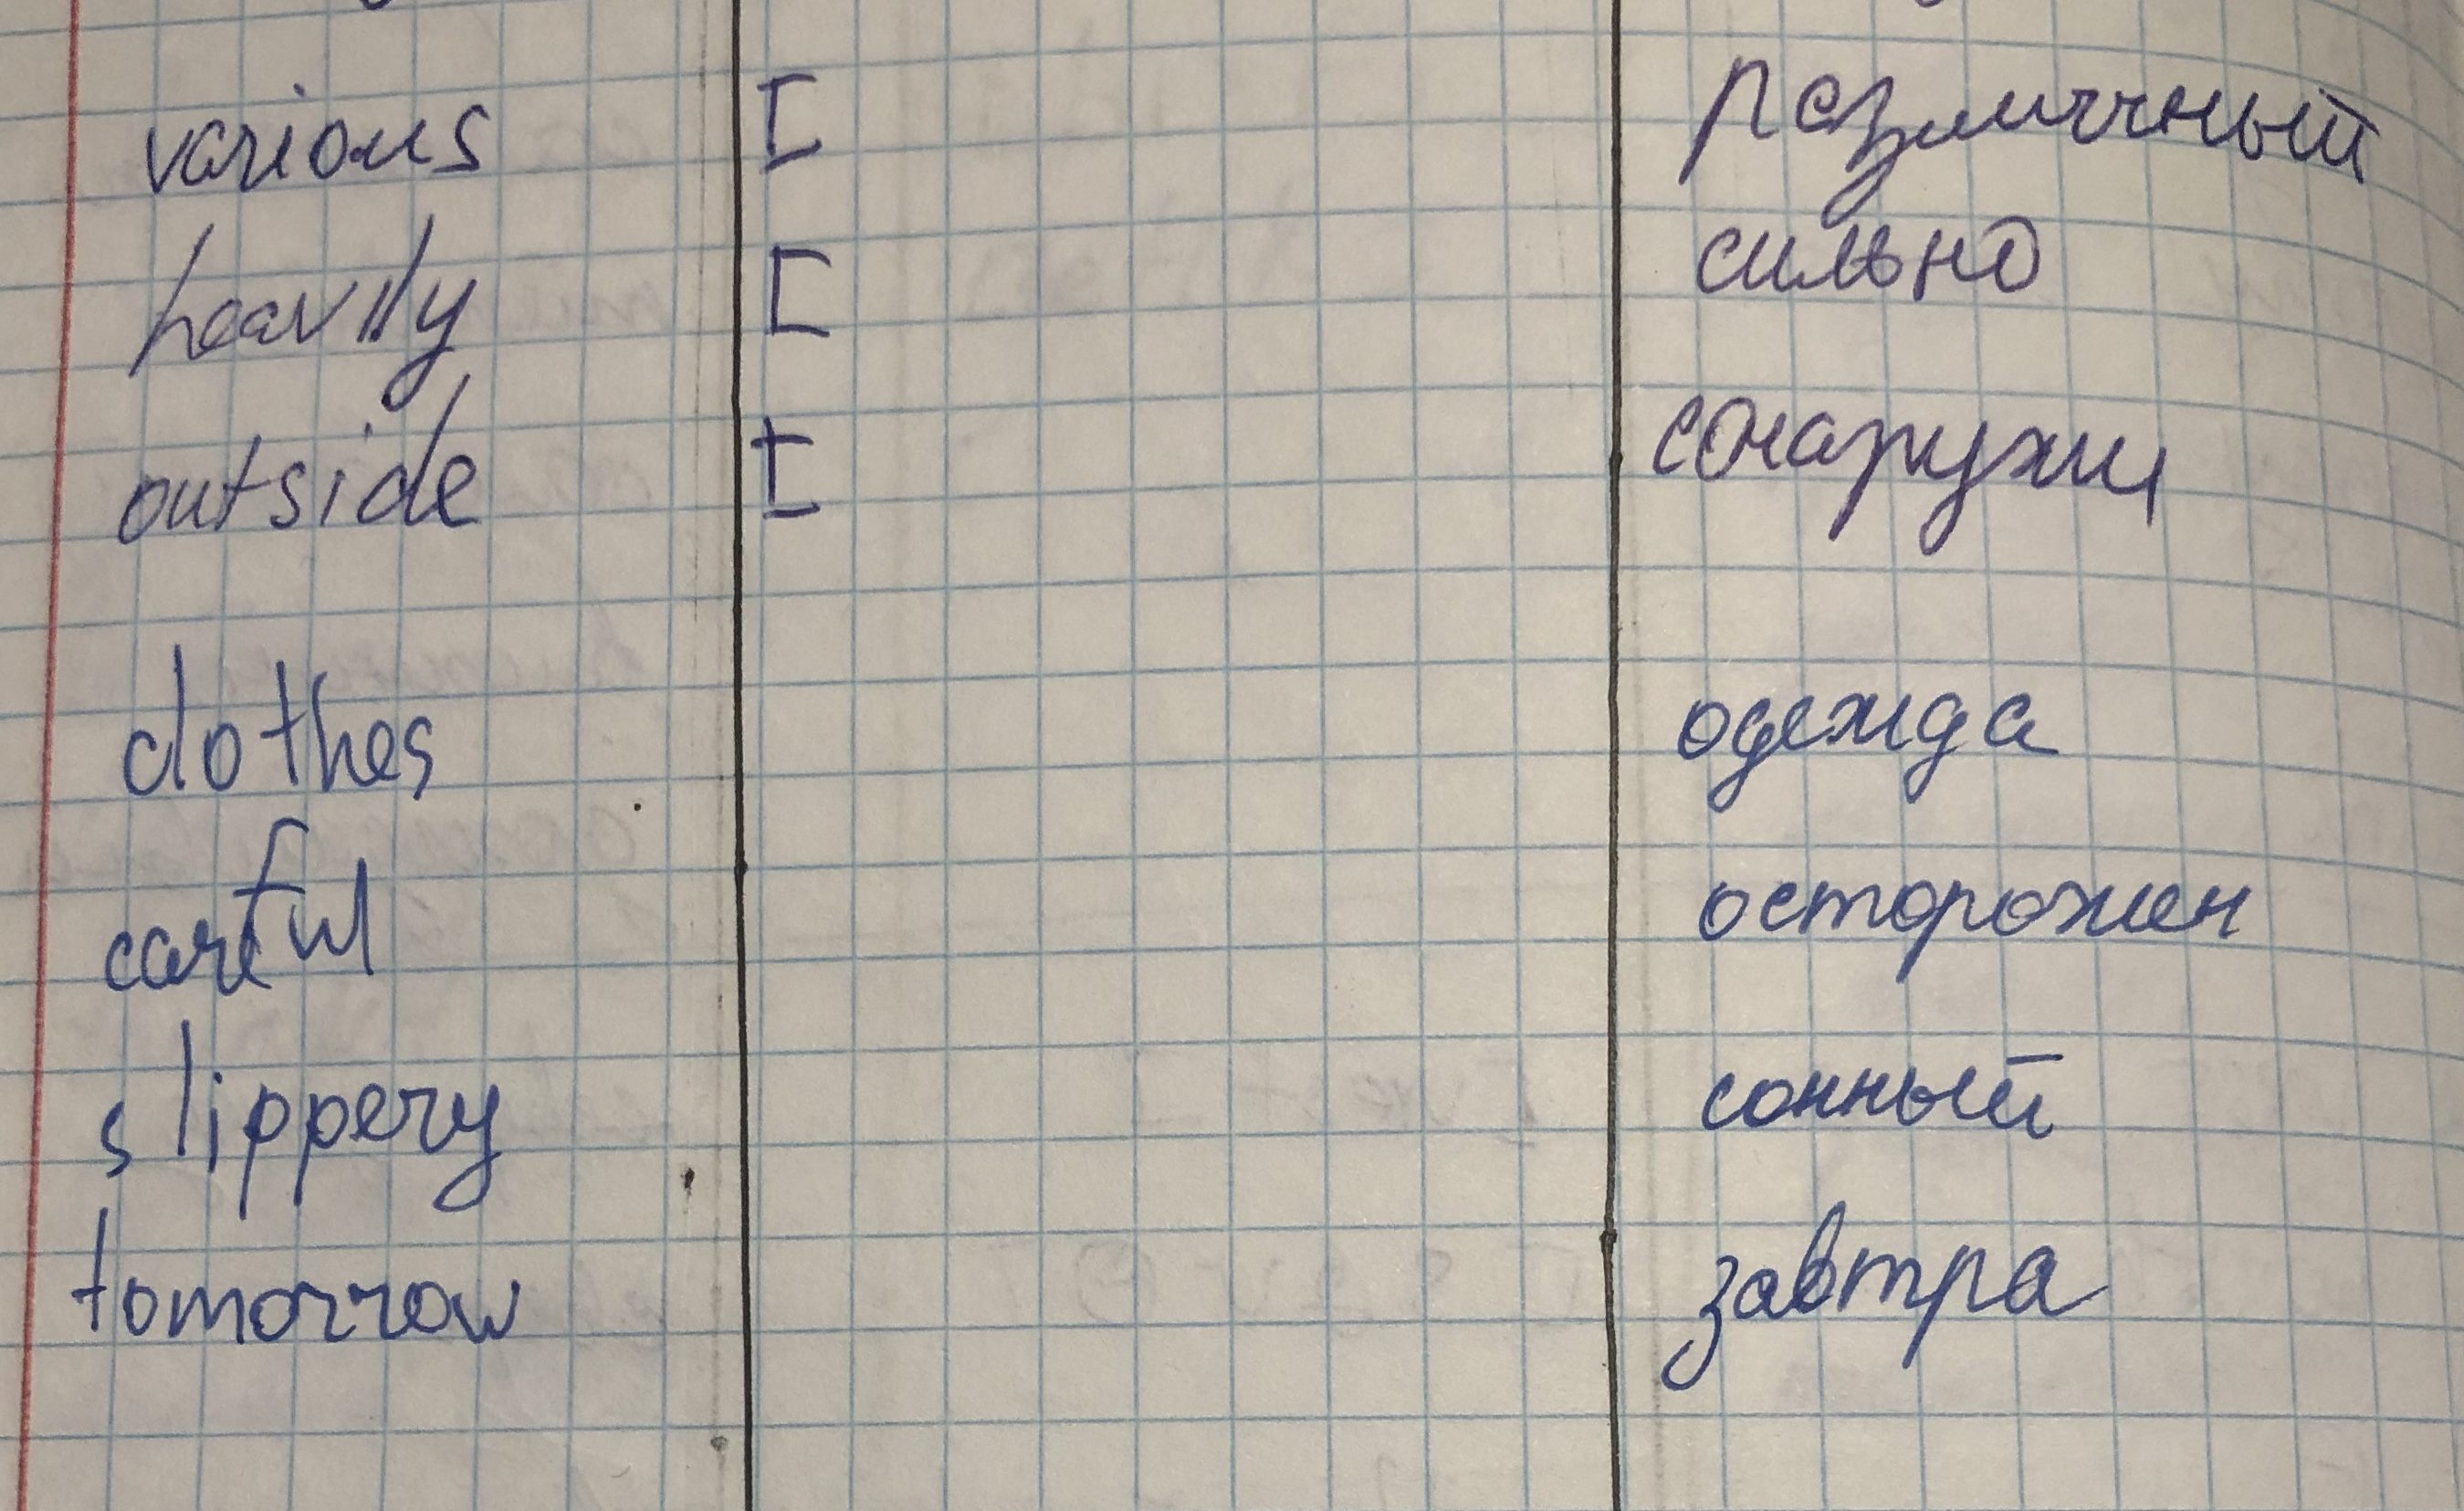 various [ различный
heavily [ сильно
outside [ сонаружи
clothes одежда
careful осторожен
slippery сонный
tomorrow завтра